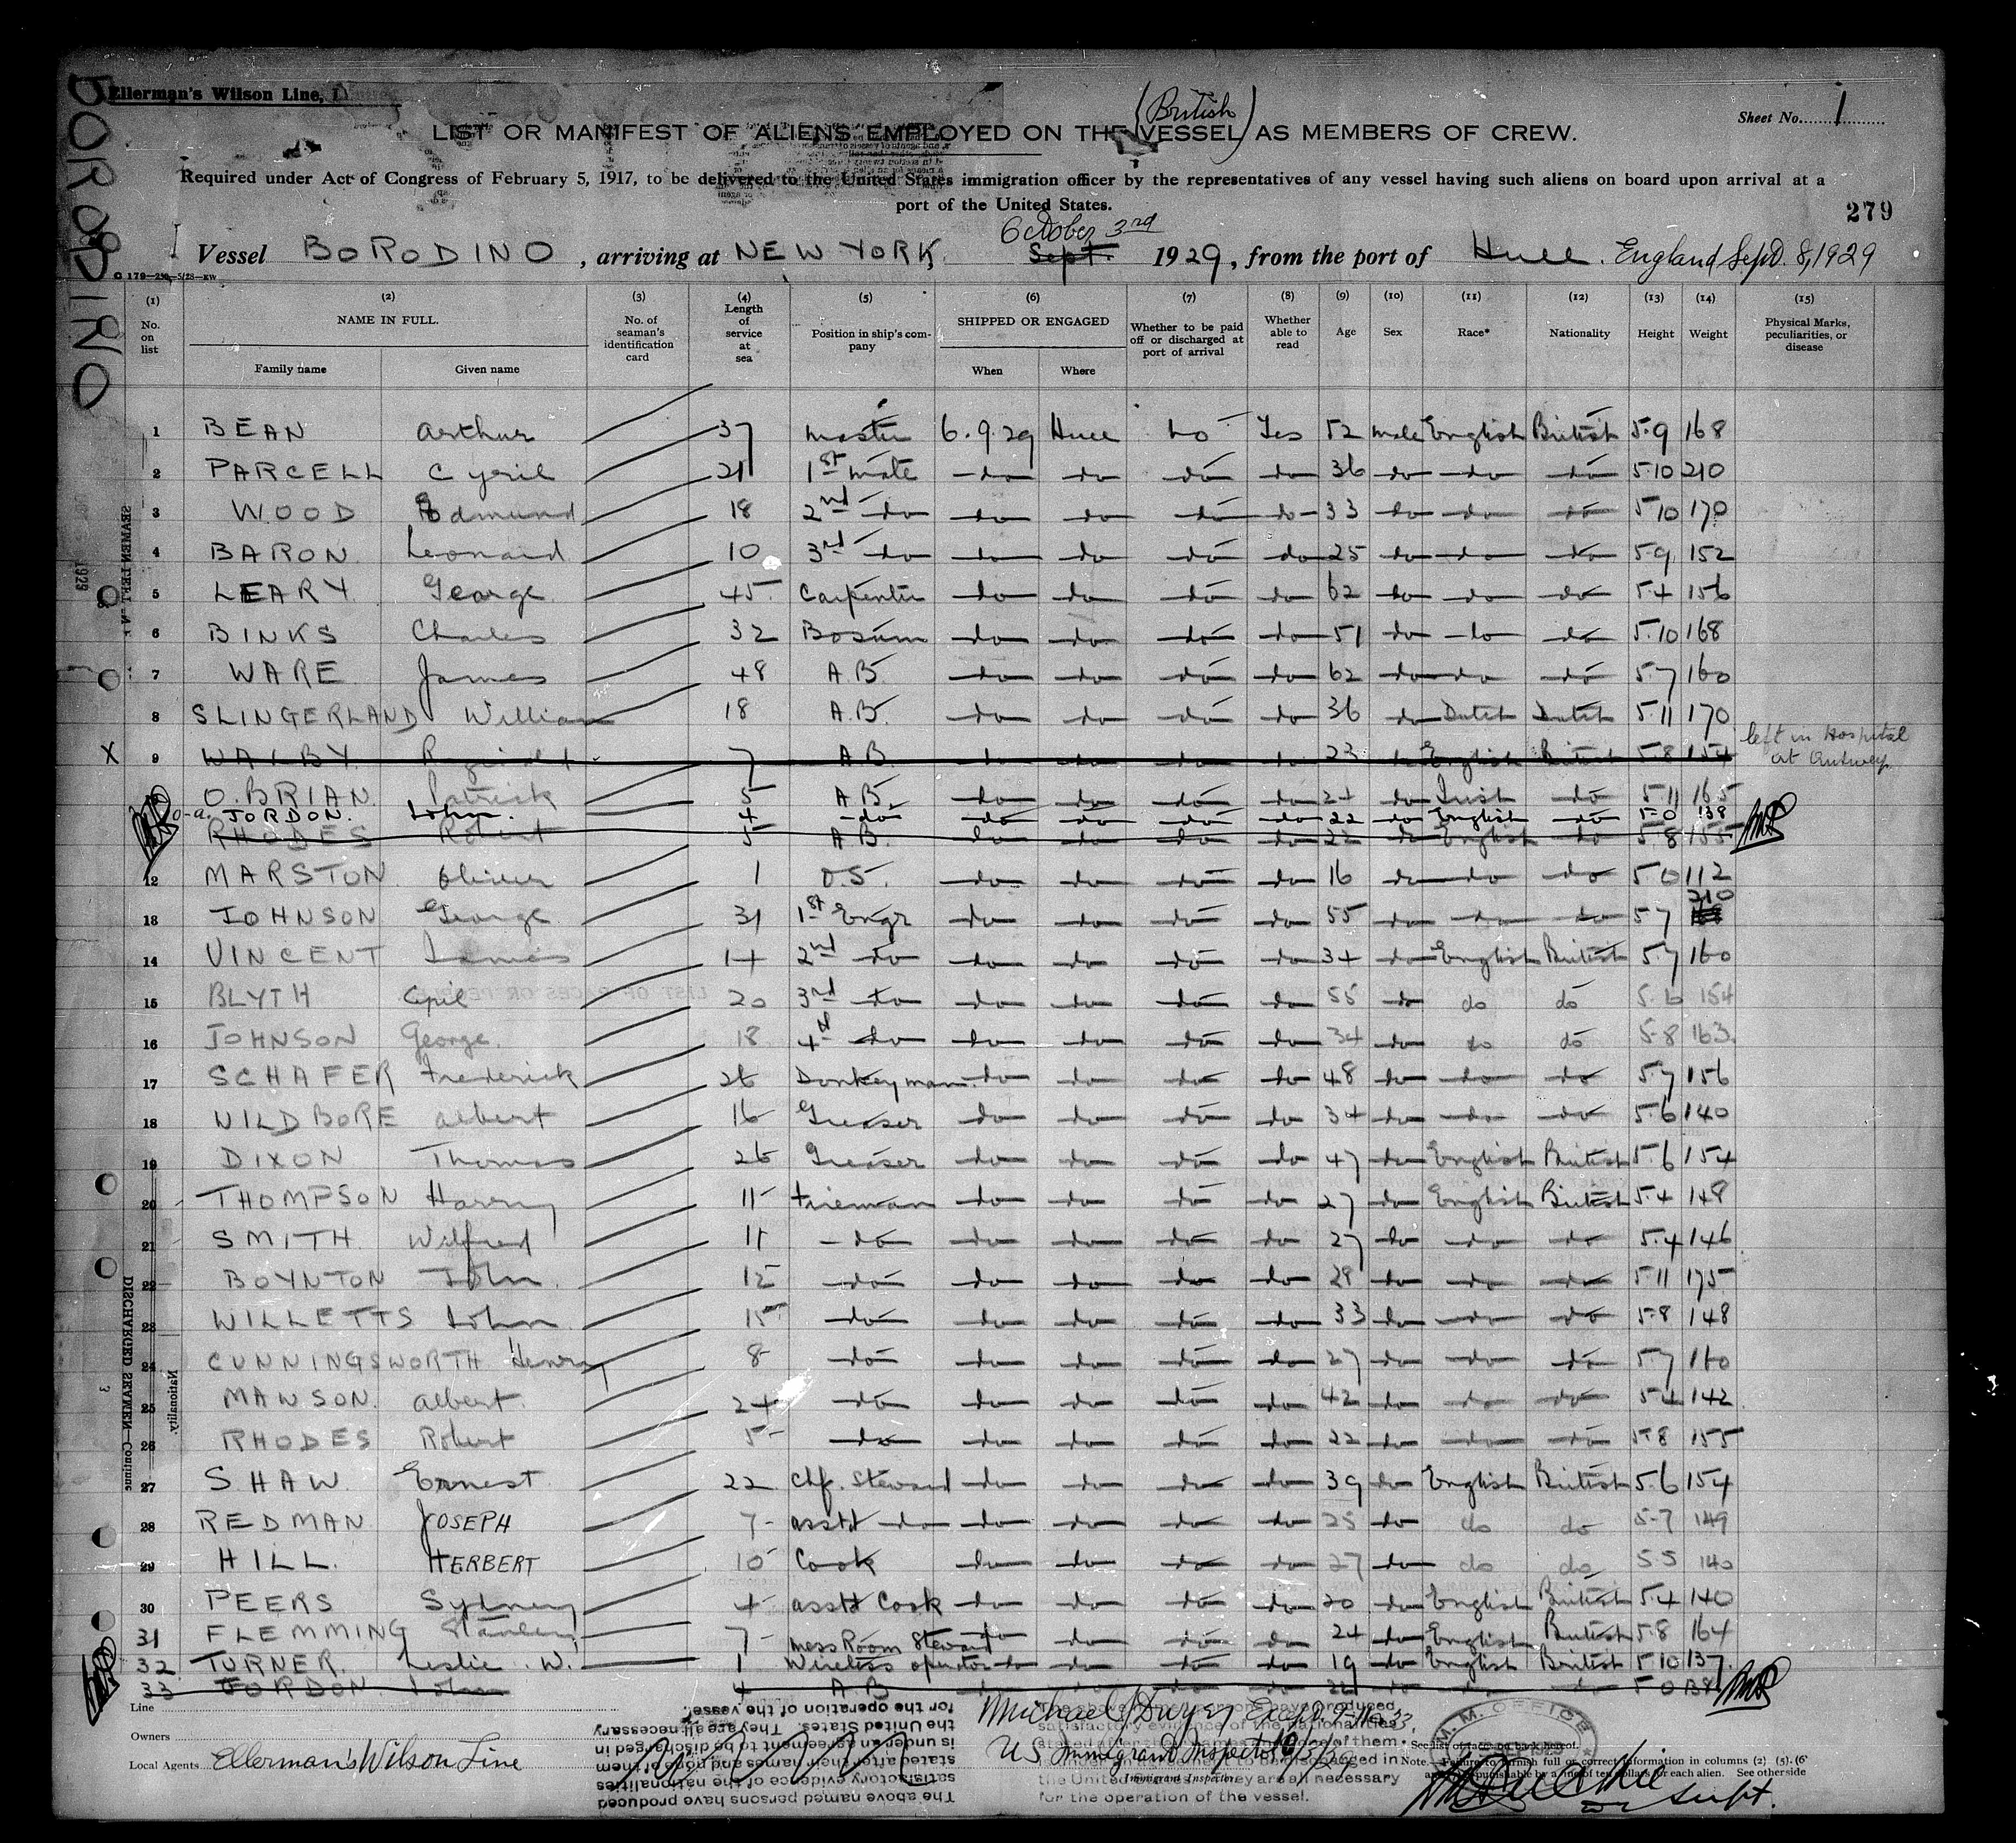 BORODINO
Ellerman's Wilson Line,
(British)
Sheet No. 1
LIST OR MANIFEST OF ALIENS EMPLOYED ON THE VESSEL AS MEMBERS OF CREW.
Required under Act of Congress of February 5, 1917, to be delivered to the United States immigration officer by the representatives of any vessel having such aliens on board upon arrival at a
port of the United States.
279
October 3rd
Vessel BORODINO, arriving at NEW YORK, Sept. 1929, from the port of Hull. England Sept. 8, 1929
(1) (2) (3) (4) (5) (6) (7) (8) (9) (10) (11) (12) (13) (14) (15)
No. on list NAME IN FULL. Family name Given name No. of seaman's identification card Length of service at sea Position in ship's company SHIPPED OR ENGAGED When Where Whether to be paid off or discharged at port of arrival Whether able to read Age Sex Race* Nationality Height Weight Physical Marks, peculiarities, or disease
1 BEAN Arthur 37 Master 6.9.29 Hull no Yes 52 male English British 5.9 168
2 PARCELL Cyril 21 1st mate do do do do 36 do do do 5.10 210
3 WOOD Edmund 18 2nd do do do do do 33 do do do 5.10 170
4 BARON Leonard 10 3rd do do do do do 25 do do do 5.9 152
5 LEARY George 45 Carpenter do do do do 62 do do do 5.4 156
6 BINKS Charles 32 Bosun do do do do 51 do do do 5.10 168
7 WARE James 48 A.B. do do do do 62 do do do 5.7 160
8 SLINGERLAND William 18 A.B. do do do do 36 do Dutch Dutch 5.11 170
X 9 WALBY 7 A.B. do do do do 23 do English British 5.8 154 left in Hospital
at
O.BRIAN Patrick 5 A.B. do do do do 24 do Irish do 5.11 165
JORDON. John. 4 do do do do do 22 do English do 5-0 138
RHODES Robert 5 A.B. do do do do 22 do English do 5.8 155
12 MARSTON 1 O.S. do do do do 16 do do do 5.0 112
13 JOHNSON George 31 1st Engr do do do do 55 do do do 5.7 210
14 VINCENT James 14 2nd do do do do do 34 do English British 5.7 160
15 BLYTH 20 3rd do do do do do 55 do do do 5.6 154
16 JOHNSON George 18 4th do do do do do 34 do do do 5.8 163
17 SCHAFER Frederick 26 Donkeyman do do do do 48 do do do 5.7 156
18 WILDBORE Albert 16 Greaser do do do do 34 do do do 5.6 140
19 DIXON Thomas 26 Greaser do do do do 47 do English British 5.6 154
20 THOMPSON Harry 11 Fireman do do do do 27 do English British 5.4 148
21 SMITH Wilfred 11 do do do do do 27 do do do 5.4 146
22 BOYNTON John 12 do do do do do 28 do do do 5.11 175
23 WILLETTS John 15 do do do do do 33 do do do 5.8 148
24 CUNNINGSWORTH Henry 8 do do do do do 27 do do do 5.7 160
25 MANSON Albert 24 do do do do do 42 do do do 5.4 142
26 RHODES Robert 5 do do do do do 22 do do do 5.8 155
27 SHAW Ernest 22 Chf. Steward do do do do 39 do English British 5.6 154
28 REDMAN JOSEPH 7 asstt do do do do do 25 do do do 5.7 149
29 HILL. HERBERT 10 Cook do do do do 27 do do do 5.5 140
30 PEERS Sydney 4 asstt Cook do do do do 20 do English British 5.4 140
31 FLEMMING Stanley 7 Mess Room Steward do do do do 24 do English British 5.8 164
32 TURNER. Leslie. W. 1 Wireless operator do do do do 19 do English British 5.10 137
33 JORDON John 4 A.B. do do do do do do do 5.0 138
Line
Owners
Local Agents Ellerman's Wilson Line
The above named persons have produced
satisfactory evidence of the nationalities
stated after their names and none of them
is under an agreement to be discharged in
the United States. They are all necessary
for the operation of the vessel.
Michael Dwyer
US Immigrant Inspector
Immigrant Inspector
See list of races on back hereof.
Note.—Failure to furnish full or correct information in columns (2) (5), (6
punishable by a fine of ten dollars for each alien. See other side
M.M. OFFICE
Supt.